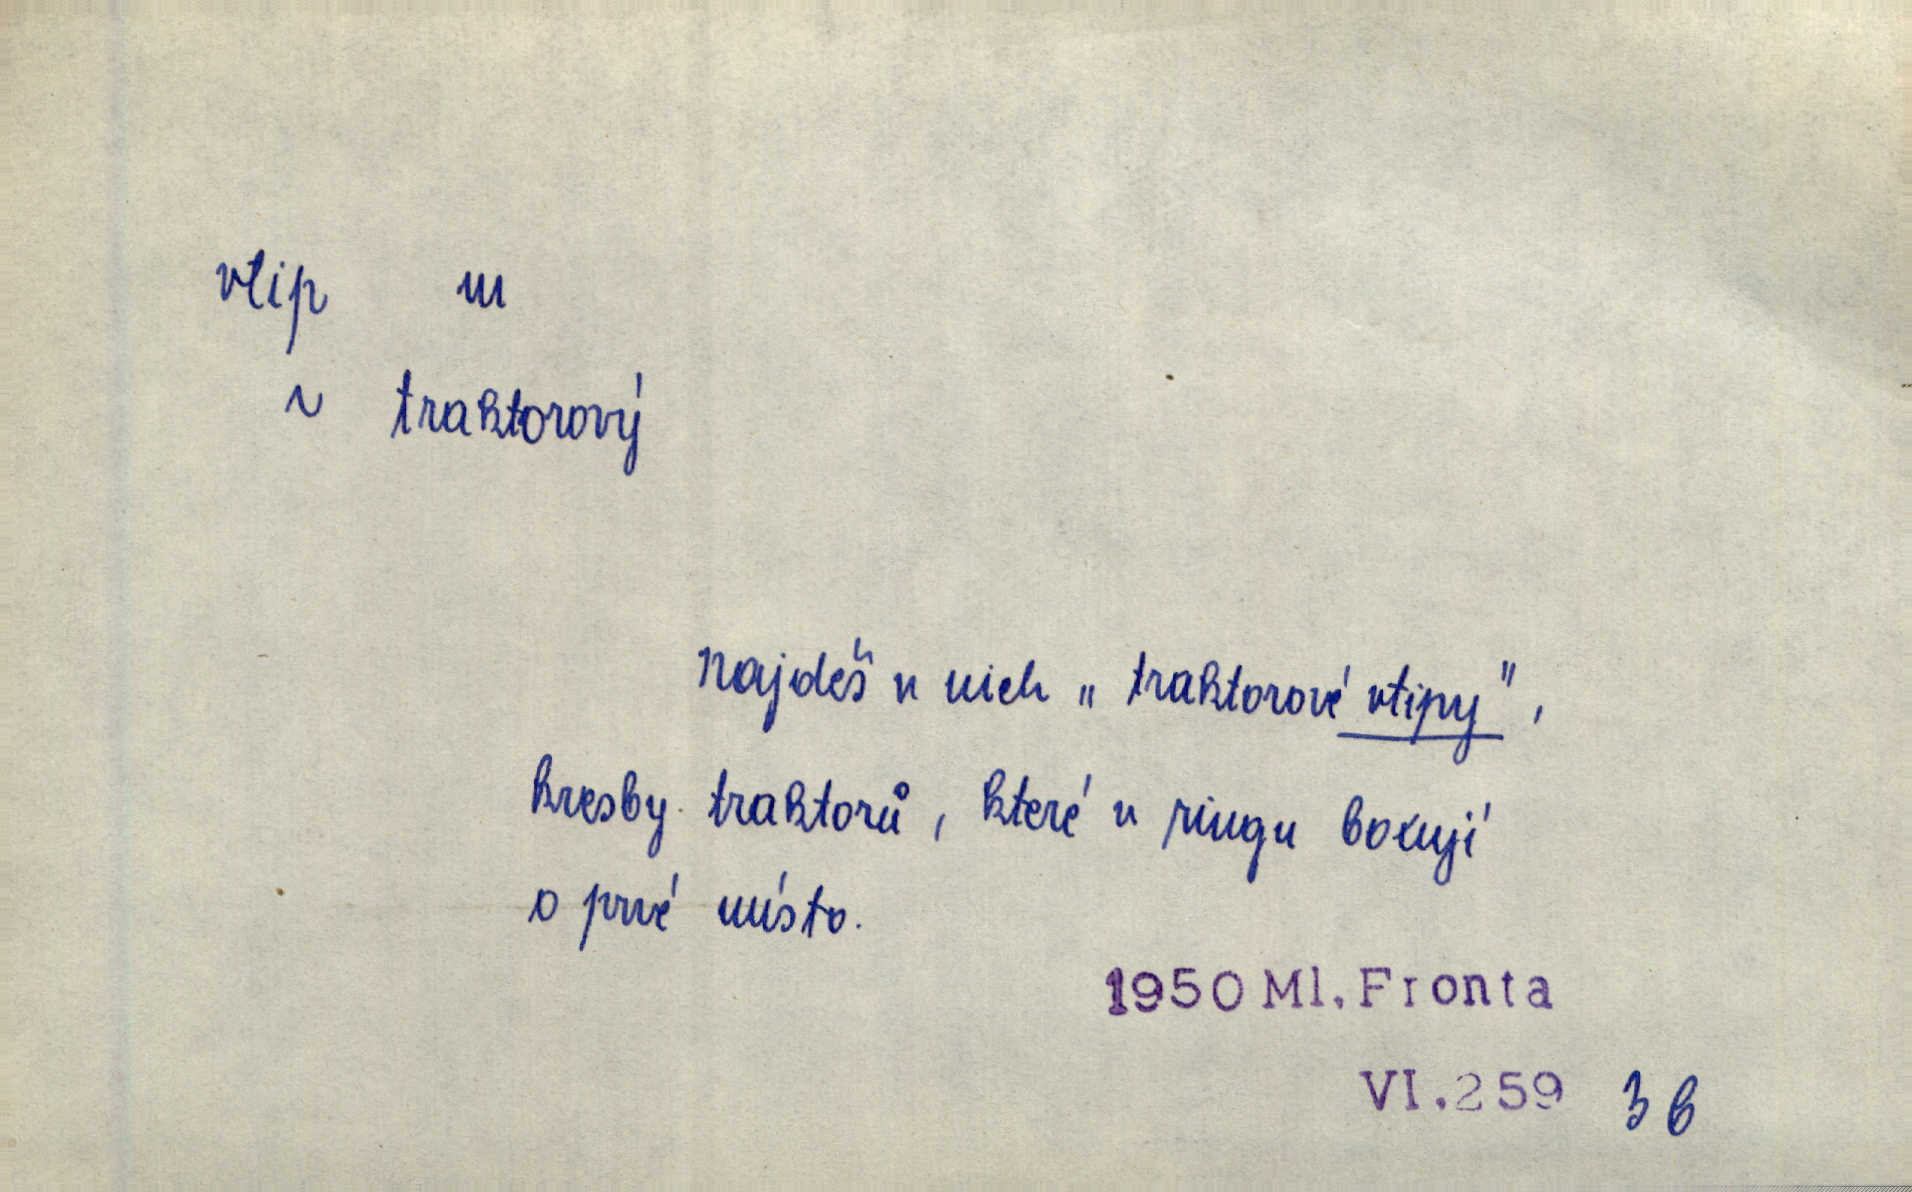 vtip m
~ traktorový
Najdeš v nich „traktorové vtipy",
kresby traktorů, které v ringu boxují
o prvé místo.
1950 Ml. Fronta
VI.259 3 6